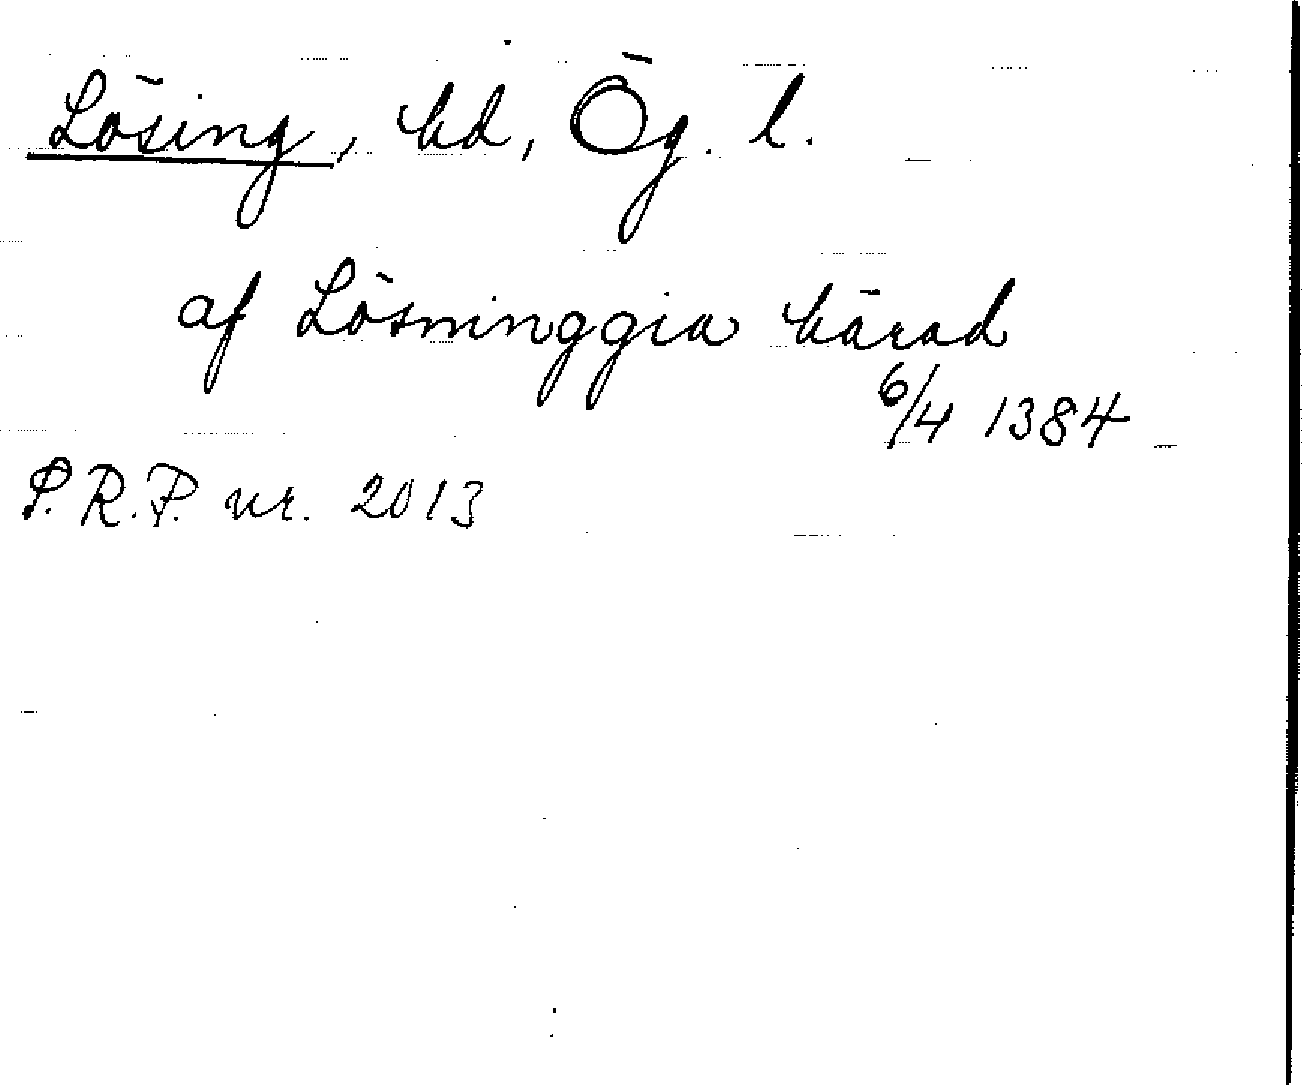 Lösing, hd, Ög. l.
af Lösninggia härad
6/4 1384
S.R.P. nr. 2013